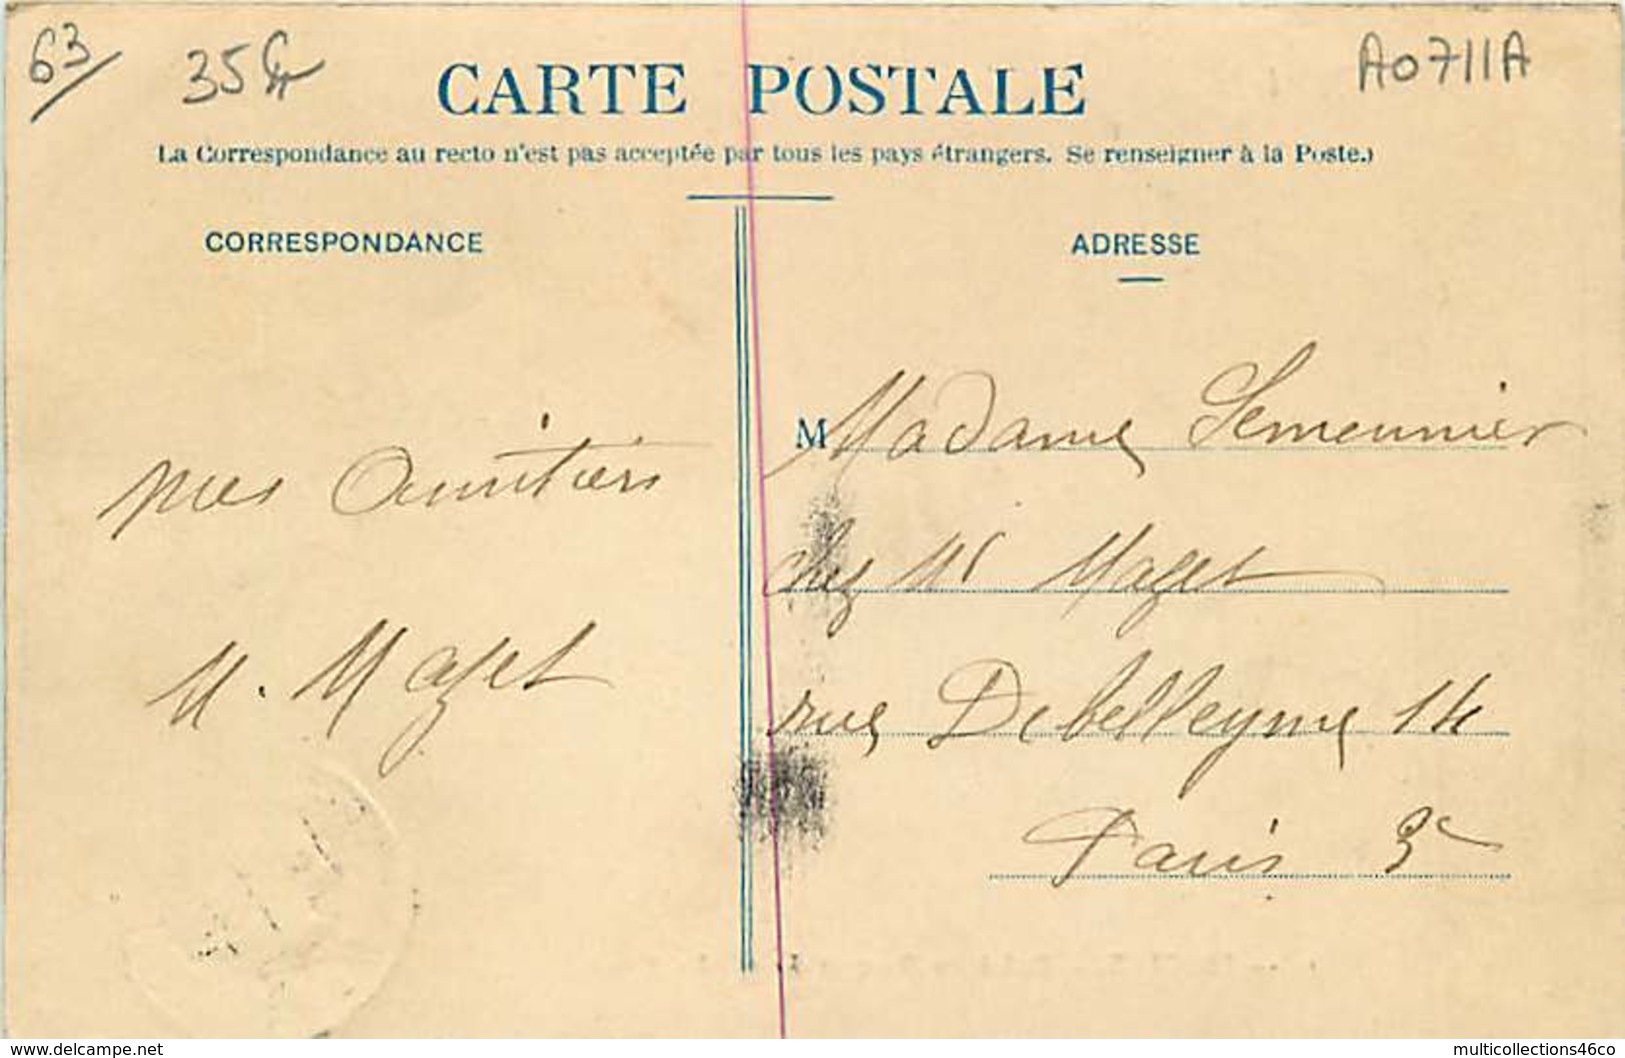 63/
35 fr
A0711A
CARTE POSTALE
La Correspondance au recto n'est pas acceptée par tous les pays étrangers. Se renseigner à la Poste.)
CORRESPONDANCE
ADRESSE
M Madame Lemeunier
chez Mr Mazet
rue Debelleyme 14
Paris 3e
mes Amitiés
M. Mazet
www.delcampe.net
multicollections46co